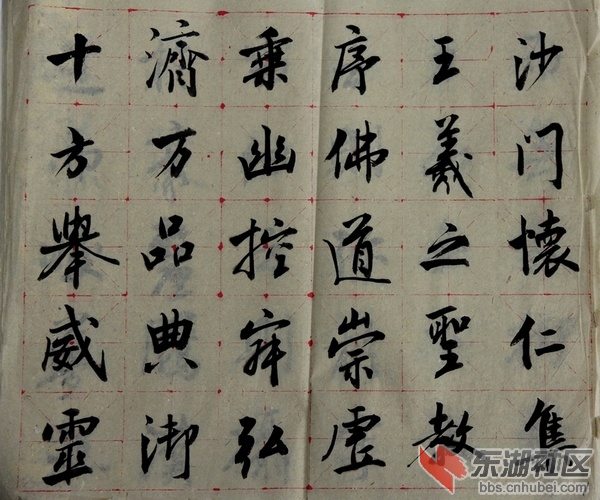 沙门懷仁集
王羲之聖教
序佛道崇虚
乗幽控寂弘
濟万品典御
十方舉威靈
东湖社区
bbs.cnhubei.com